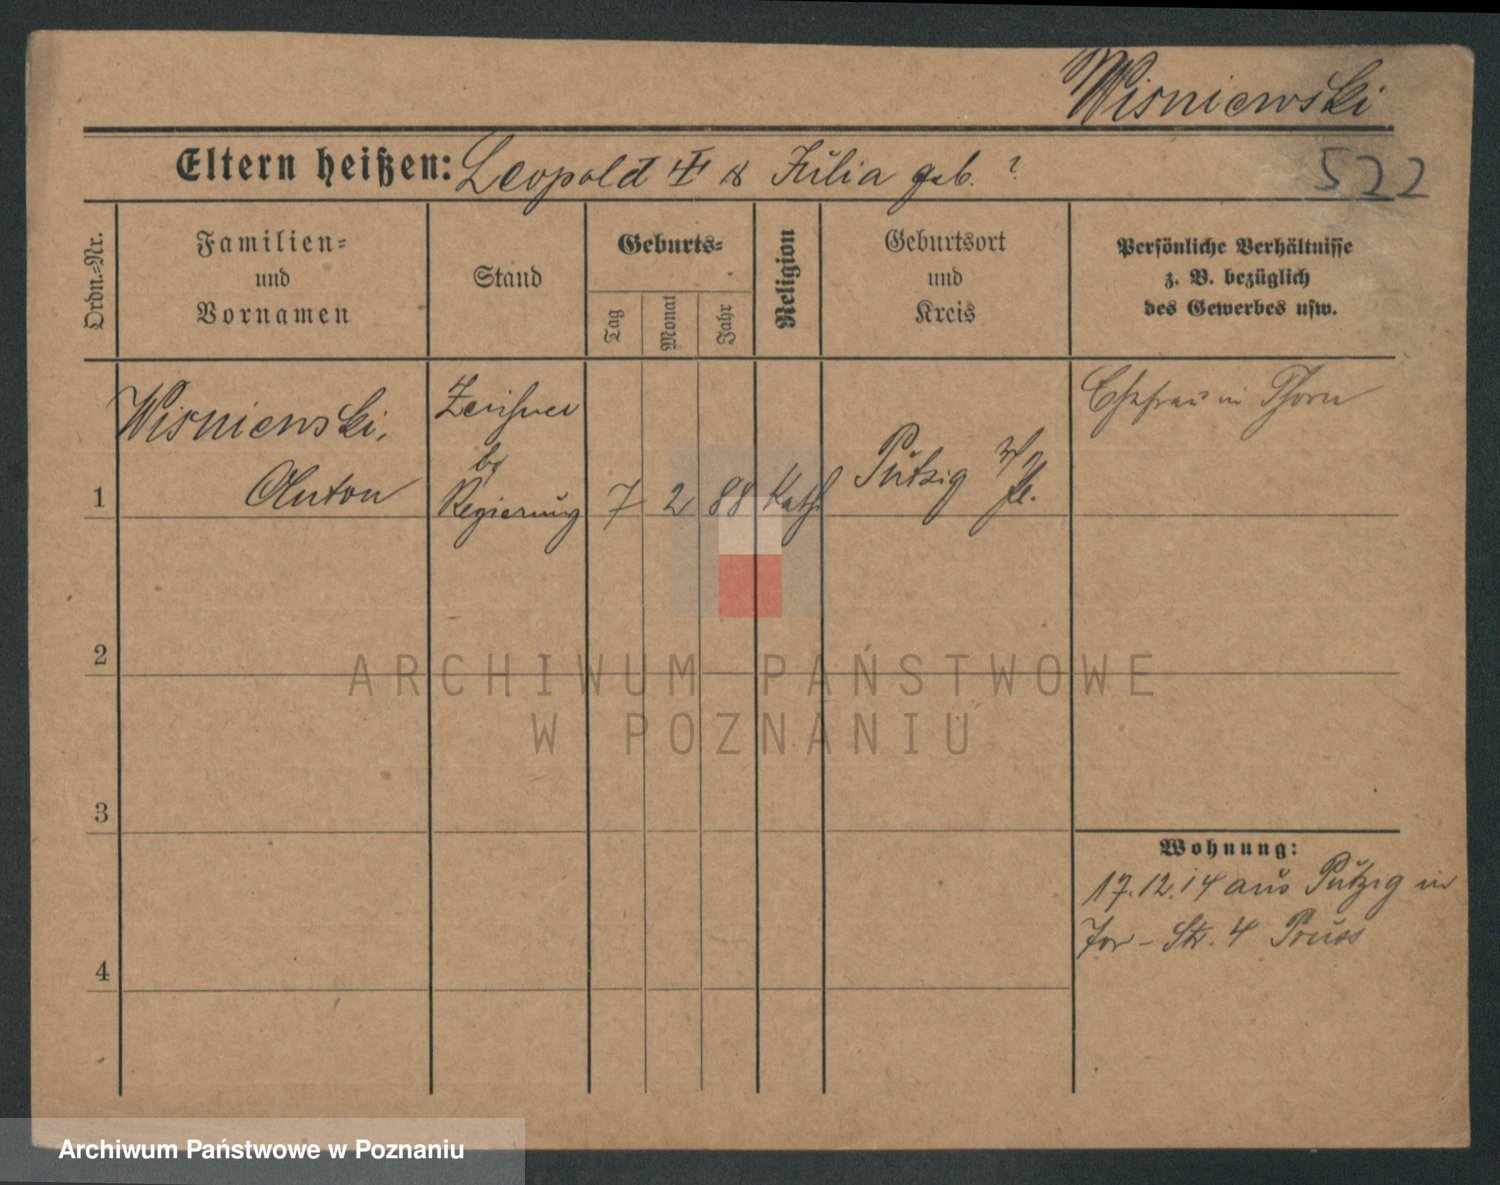 Wisniewski
Eltern heißen: Leopold u Julia geb. ?
522
Ordn.-Nr.
Familien-
und
Vornamen
Stand
Geburts-
Tag
Monat
Jahr
Religion
Geburtsort
und
Kreis
Persönliche Verhältnisse
z. B. bezüglich
des Gewerbes usw.
1
Wisniewski,
Anton
Zeichner
by
Regierung
7
2
88
Kath
Putzig W/Pr.
Ehefrau in Thorn
2
3
4
Wohnung:
17.12.14 aus Putzig in
Str. 4
ARCHIWUM PAŃSTWOWE
W POZNANIU
Archiwum Państwowe w Poznaniu